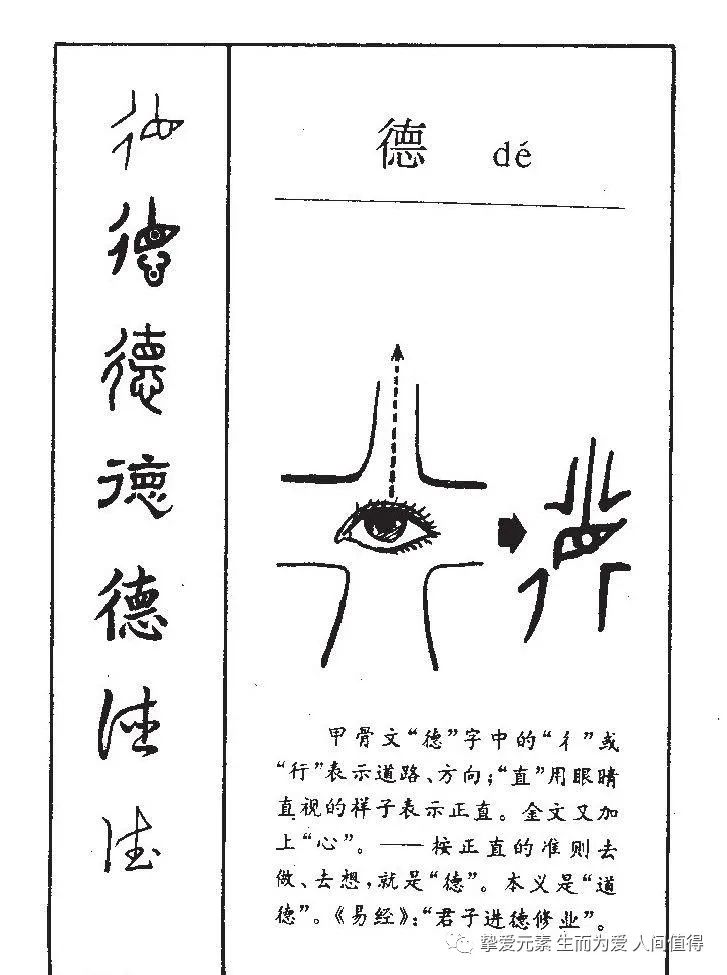 德 dé
德
德
德
德
德
德
德
甲骨文“德”字中的“彳”或
“行”表示道路、方向；“直”用眼睛
直视的样子表示正直。金文又加
上“心”。——按正直的准则去
做、去想，就是“德”。本义是“道
德”。《易经》：“君子进德修业”。
挚爱元素 生而为爱 人间值得